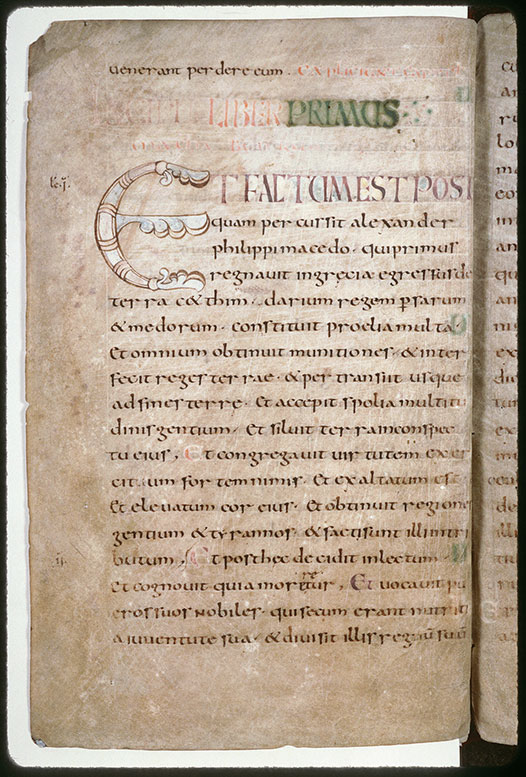 venerant perdere eum. EXPLICIT
INCIPIT LIBER PRIMUS
ET FACTUM EST POST
quam percussit alexander
philippi macedo. qui primus
regnavit in grecia egressus de
terra c&thim. darium regem persarum
& medorum. constituit proelia multa.
Et omnium obtinuit munitiones. & inter
fecit reges terrae. & per transiit usque
ad fines terre. Et accepit spolia multitu
dinis gentium. Et siluit terra in conspec
tu eius, Et congregavit virtutem & exer
citum fortem nimis. Et exaltatum est
Et elevatum cor eius. Et obtinuit regiones
gentium & tyrannos. & facti sunt illi in tri
butum, Et post hec decidit in lectum.
Et cognovit quia moretur, Et vocavit pu
eros suos nobiles. qui secum erant nutriti
a iuventute sua. & divisit illis regnū suū